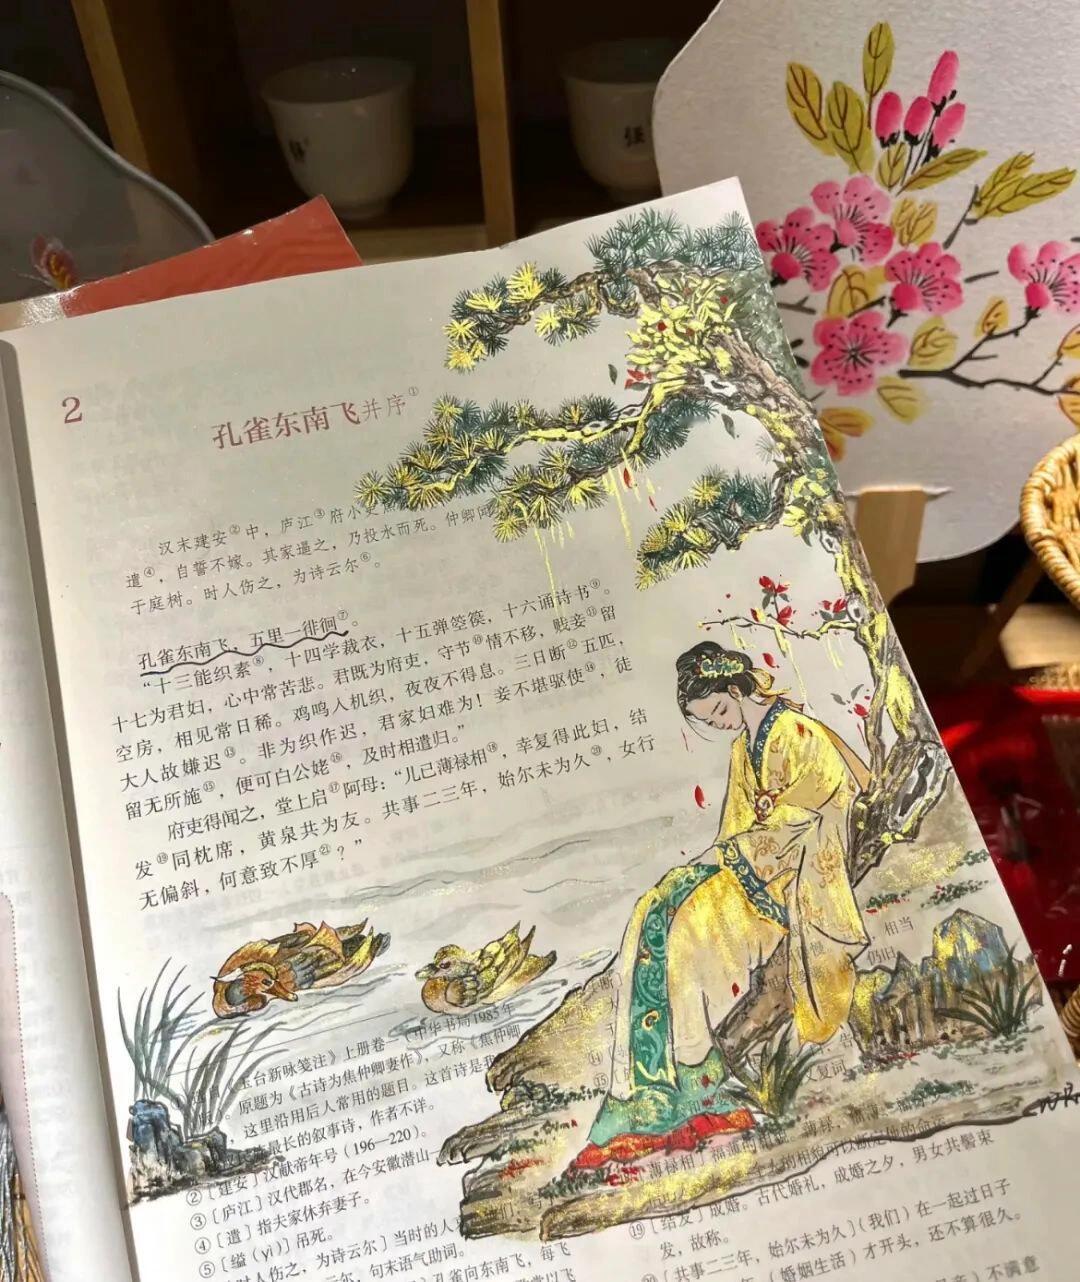 2
孔雀东南飞并序①
汉末建安②中，庐江③府小吏
遣④，自誓不嫁。其家逼之，乃投水而死。仲卿闻
于庭树。时人伤之，为诗云尔⑥。
孔雀东南飞，五里一徘徊⑦。
“十三能织素⑧，十四学裁衣，十五弹箜篌，十六诵诗书⑨。
十七为君妇，心中常苦悲。君既为府吏，守节⑩情不移，贱妾⑪留
空房，相见常日稀。鸡鸣入机织，夜夜不得息。三日断⑫五匹，
大人故嫌迟⑬。非为织作迟，君家妇难为！妾不堪驱使⑭，徒
留无所施⑮，便可白公姥⑯，及时相遣归。”
府吏得闻之，堂上启⑰阿母：“儿已薄禄相⑱，幸复得此妇，结
发⑲同枕席，黄泉共为友。共事二三年，始尔未为久⑳，女行
无偏斜，何意致不厚㉑？”
《玉台新咏笺注》上册卷一（中华书局1985年
版）。原题为《古诗为焦仲卿妻作》，又称《焦仲卿
这里沿用后人常用的题目。这首诗是我
最长的叙事诗，作者不详。
②〔建安〕汉献帝年号（196—220）。
③〔庐江〕汉代郡名，在今安徽潜山一
④〔遣〕指夫家休弃妻子。
⑤〔缢（yì）〕吊死。
时人伤之，为诗云尔〕当时的人
云尔，句末语气助词。
孔雀向东南飞，每飞
相当
仍旧
⑭
⑮
又复词
薄禄相
⑲〔结发〕成婚。古代婚礼，成婚之夕，男女共髻束
发，故称。
⑳〔共事二三年，始尔未为久〕（我们）在一起过日子
（婚姻生活）才开头，还不算很久。
不满意